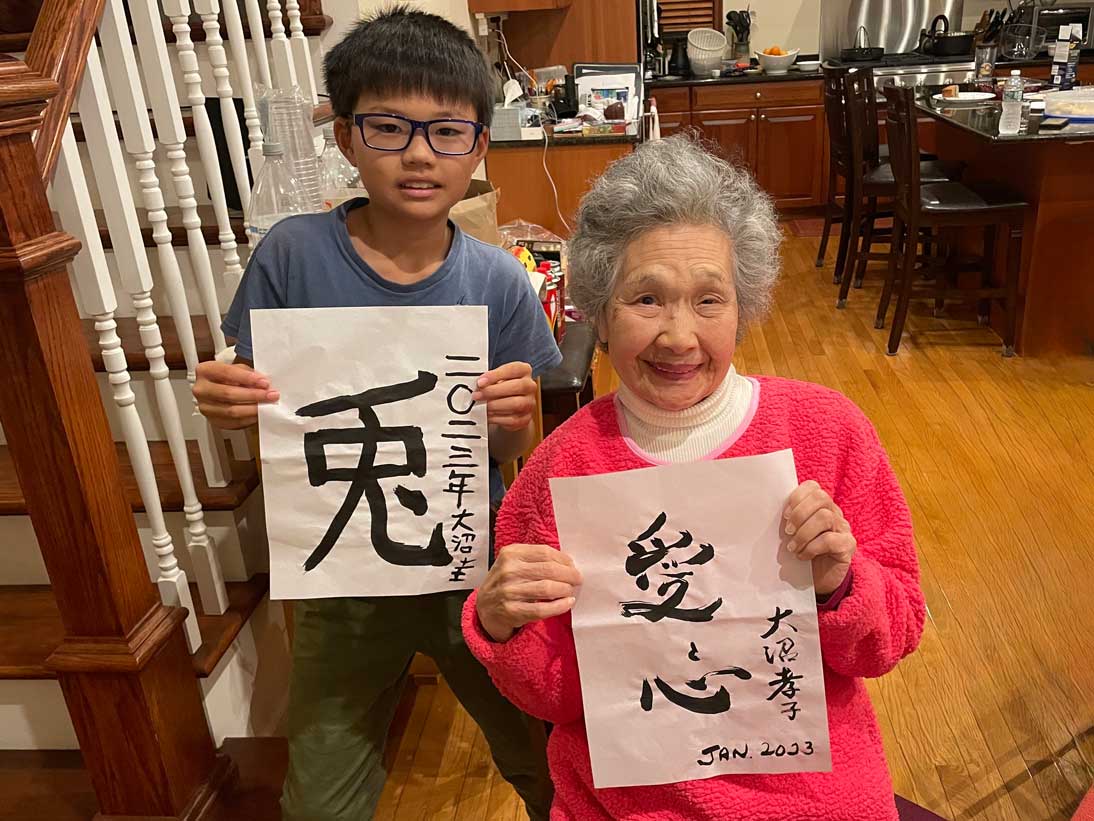 兎
二〇二三年大沼圭
愛と心
大沼孝子
JAN. 2023